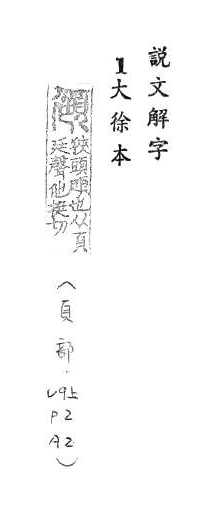 説文解字
1大徐本
頲
狹頭頲也从頁
廷聲他挺切
(頁部.
V9上
P2
A2)